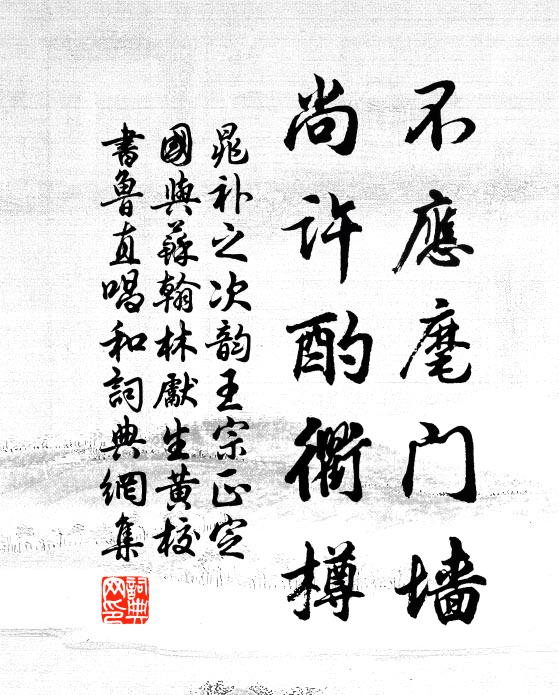 不應麾门墙
尚许酌衢樽
晁补之次韵王宗正定
國與蘇翰林獻生黄校
書魯直唱和詞典網集
詞典
网印